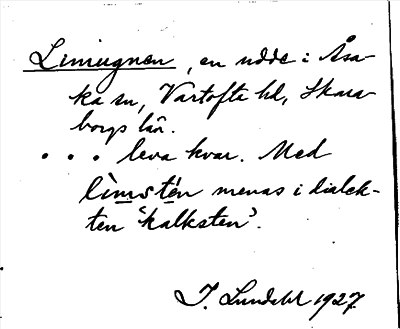 Limugnen, en udde i Åsa-
ka sn, Vartofta hd, Skara-
borgs län.
. . . leva kvar. Med
limstén menas i dialek-
ten 'kalksten'.
I. Lundahl 1927.